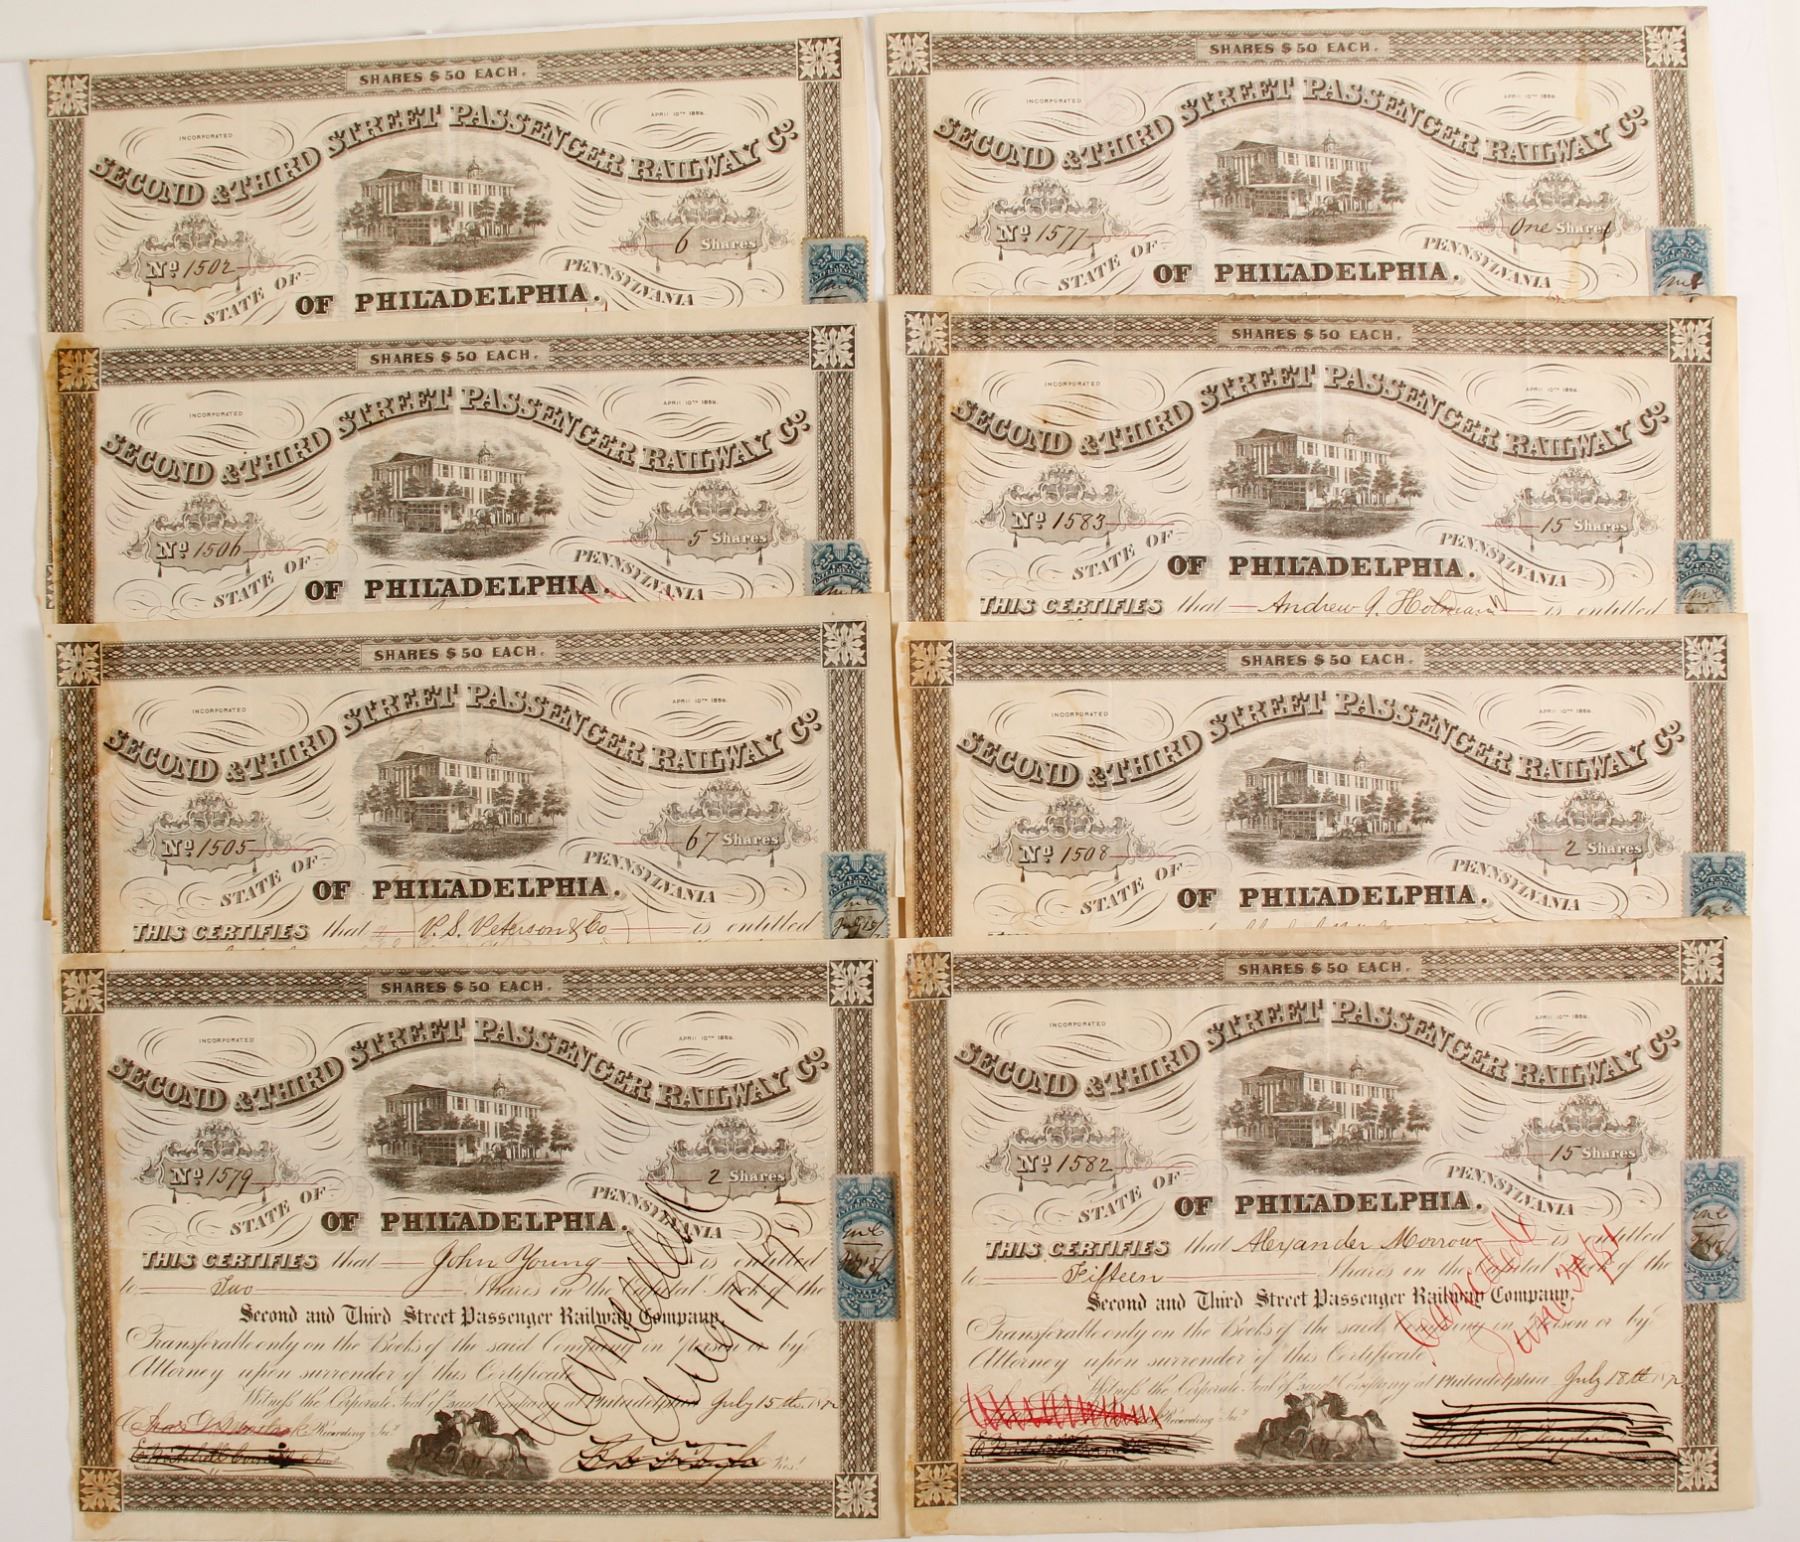 SHARES $50 EACH.
INCORPORATED APRIL 10TH 1858.
SECOND & THIRD STREET PASSENGER RAILWAY Co.
No 1502
6 Shares
STATE OF PENNSYLVANIA
OF PHILADELPHIA.
SHARES $50 EACH.
INCORPORATED APRIL 10TH 1858.
SECOND & THIRD STREET PASSENGER RAILWAY Co.
No 1577
One Shares
STATE OF PENNSYLVANIA
OF PHILADELPHIA.
SHARES $50 EACH.
INCORPORATED APRIL 10TH 1858.
SECOND & THIRD STREET PASSENGER RAILWAY Co.
No 1506
5 Shares
STATE OF PENNSYLVANIA
OF PHILADELPHIA.
SHARES $50 EACH.
INCORPORATED APRIL 10TH 1858.
SECOND & THIRD STREET PASSENGER RAILWAY Co.
No 1583
15 Shares
STATE OF PENNSYLVANIA
OF PHILADELPHIA.
THIS CERTIFIES that Andrew J. Holman is entitled
SHARES $50 EACH.
INCORPORATED APRIL 10TH 1858.
SECOND & THIRD STREET PASSENGER RAILWAY Co.
No 1505
67 Shares
STATE OF PENNSYLVANIA
OF PHILADELPHIA.
THIS CERTIFIES that P. S. Peterson & Co is entitled
SHARES $50 EACH.
INCORPORATED APRIL 10TH 1858.
SECOND & THIRD STREET PASSENGER RAILWAY Co.
No 1508
2 Shares
STATE OF PENNSYLVANIA
OF PHILADELPHIA.
SHARES $50 EACH.
INCORPORATED APRIL 10TH 1858.
SECOND & THIRD STREET PASSENGER RAILWAY Co.
No 1579
2 Shares
STATE OF PENNSYLVANIA
OF PHILADELPHIA.
THIS CERTIFIES that John Young is entitled
to Two Shares in the Capital Stock of the
Second and Third Street Passenger Railway Company,
Transferable only on the Books of the said Company in Person or by
Attorney upon surrender of this Certificate
Witness the Corporate Seal of said Company at Philadelphia July 15th 1872
Recording Sec.
Pres.
Cancelled
SHARES $50 EACH.
INCORPORATED APRIL 10TH 1858.
SECOND & THIRD STREET PASSENGER RAILWAY Co.
No 1582
15 Shares
STATE OF PENNSYLVANIA
OF PHILADELPHIA.
THIS CERTIFIES that Alexander Morrow is entitled
to Fifteen Shares in the Capital Stock of the
Second and Third Street Passenger Railway Company,
Transferable only on the Books of the said Company in Person or by
Attorney upon surrender of this Certificate
Witness the Corporate Seal of said Company at Philadelphia July 18th 1872
Recording Sec.
Cancelled
June